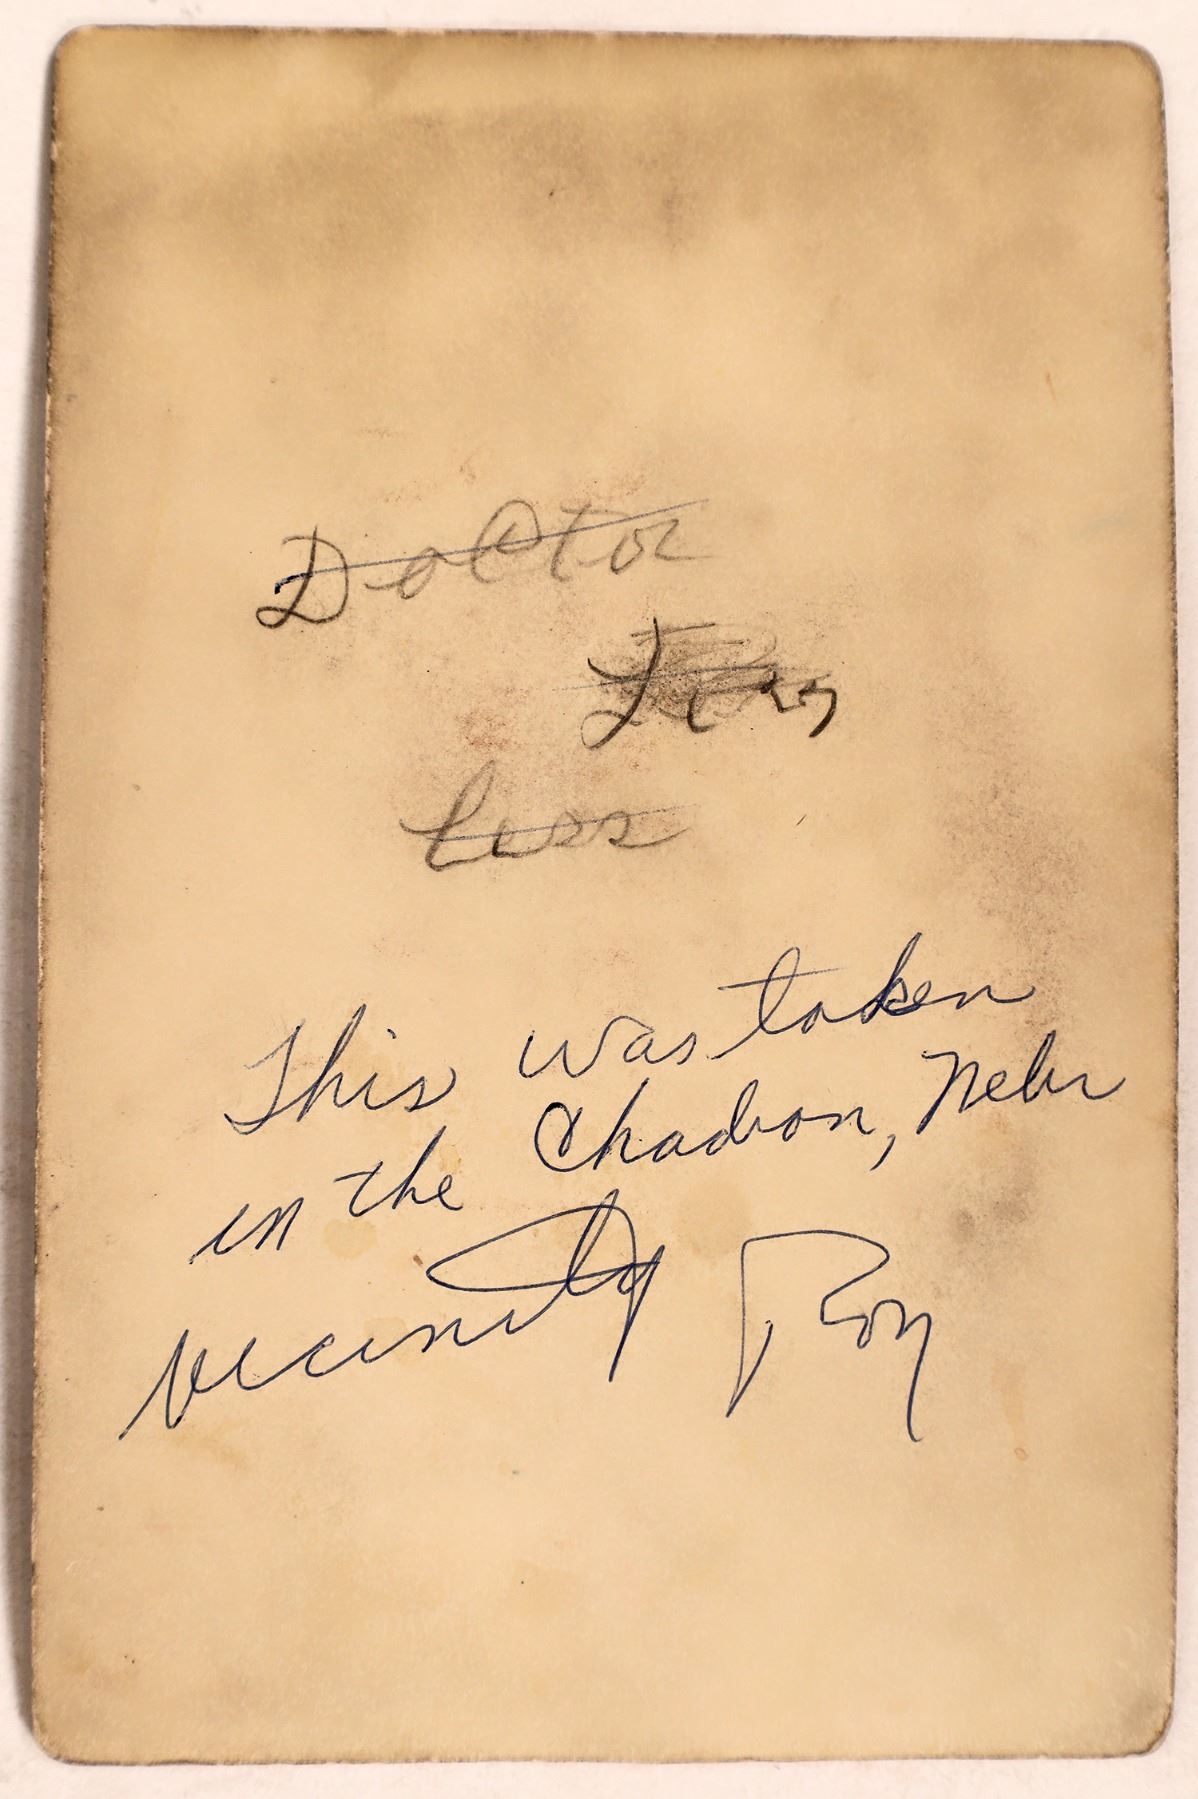 Doctor
This was taken
in the Chadron, Nebr
vicinity Roy